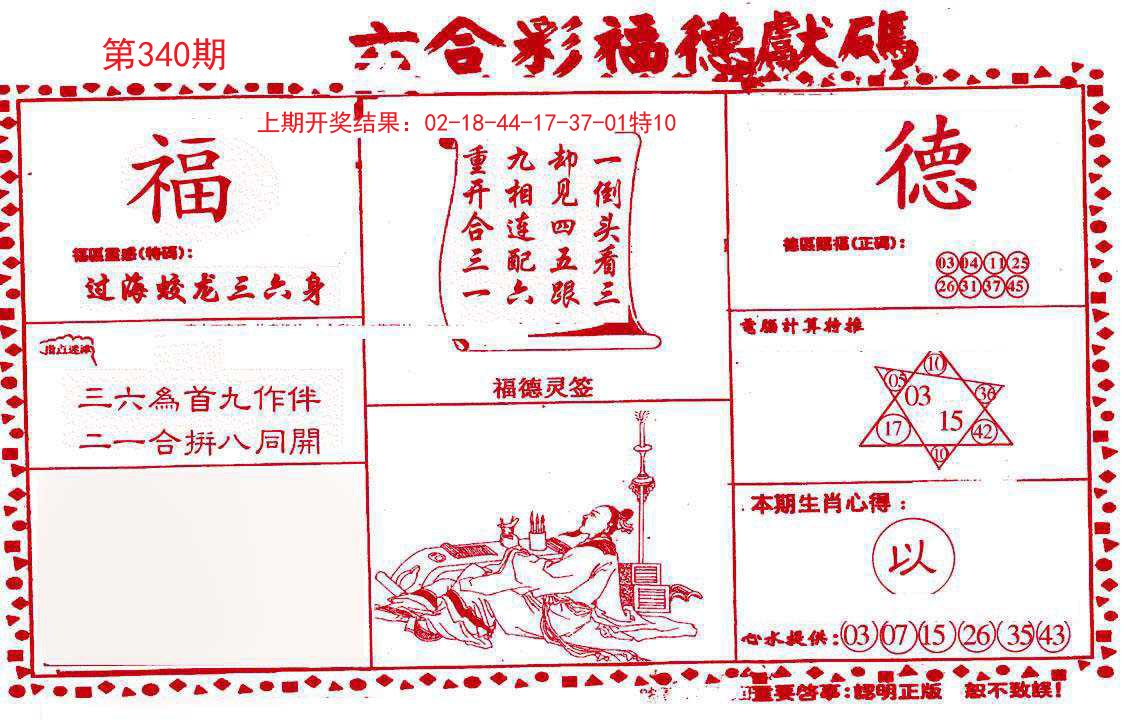 六合彩福德獻碼
第340期
上期开奖结果：02-18-44-17-37-01特10
福
福區靈感(特碼)：
过海蛟龙三六身
三六為首九作伴
二一合拼八同開
一倒头看三
却见四五跟
九相连配六
重开合三一
福德灵签
德
德區賜福(正碼)：
03 04 11 25
26 31 37 45
電腦計算特推
10
05 03 36
17 15 42
10
本期生肖心得：
以
心水提供：03 07 15 26 35 43
重要啓事：認明正版 恕不致誤！